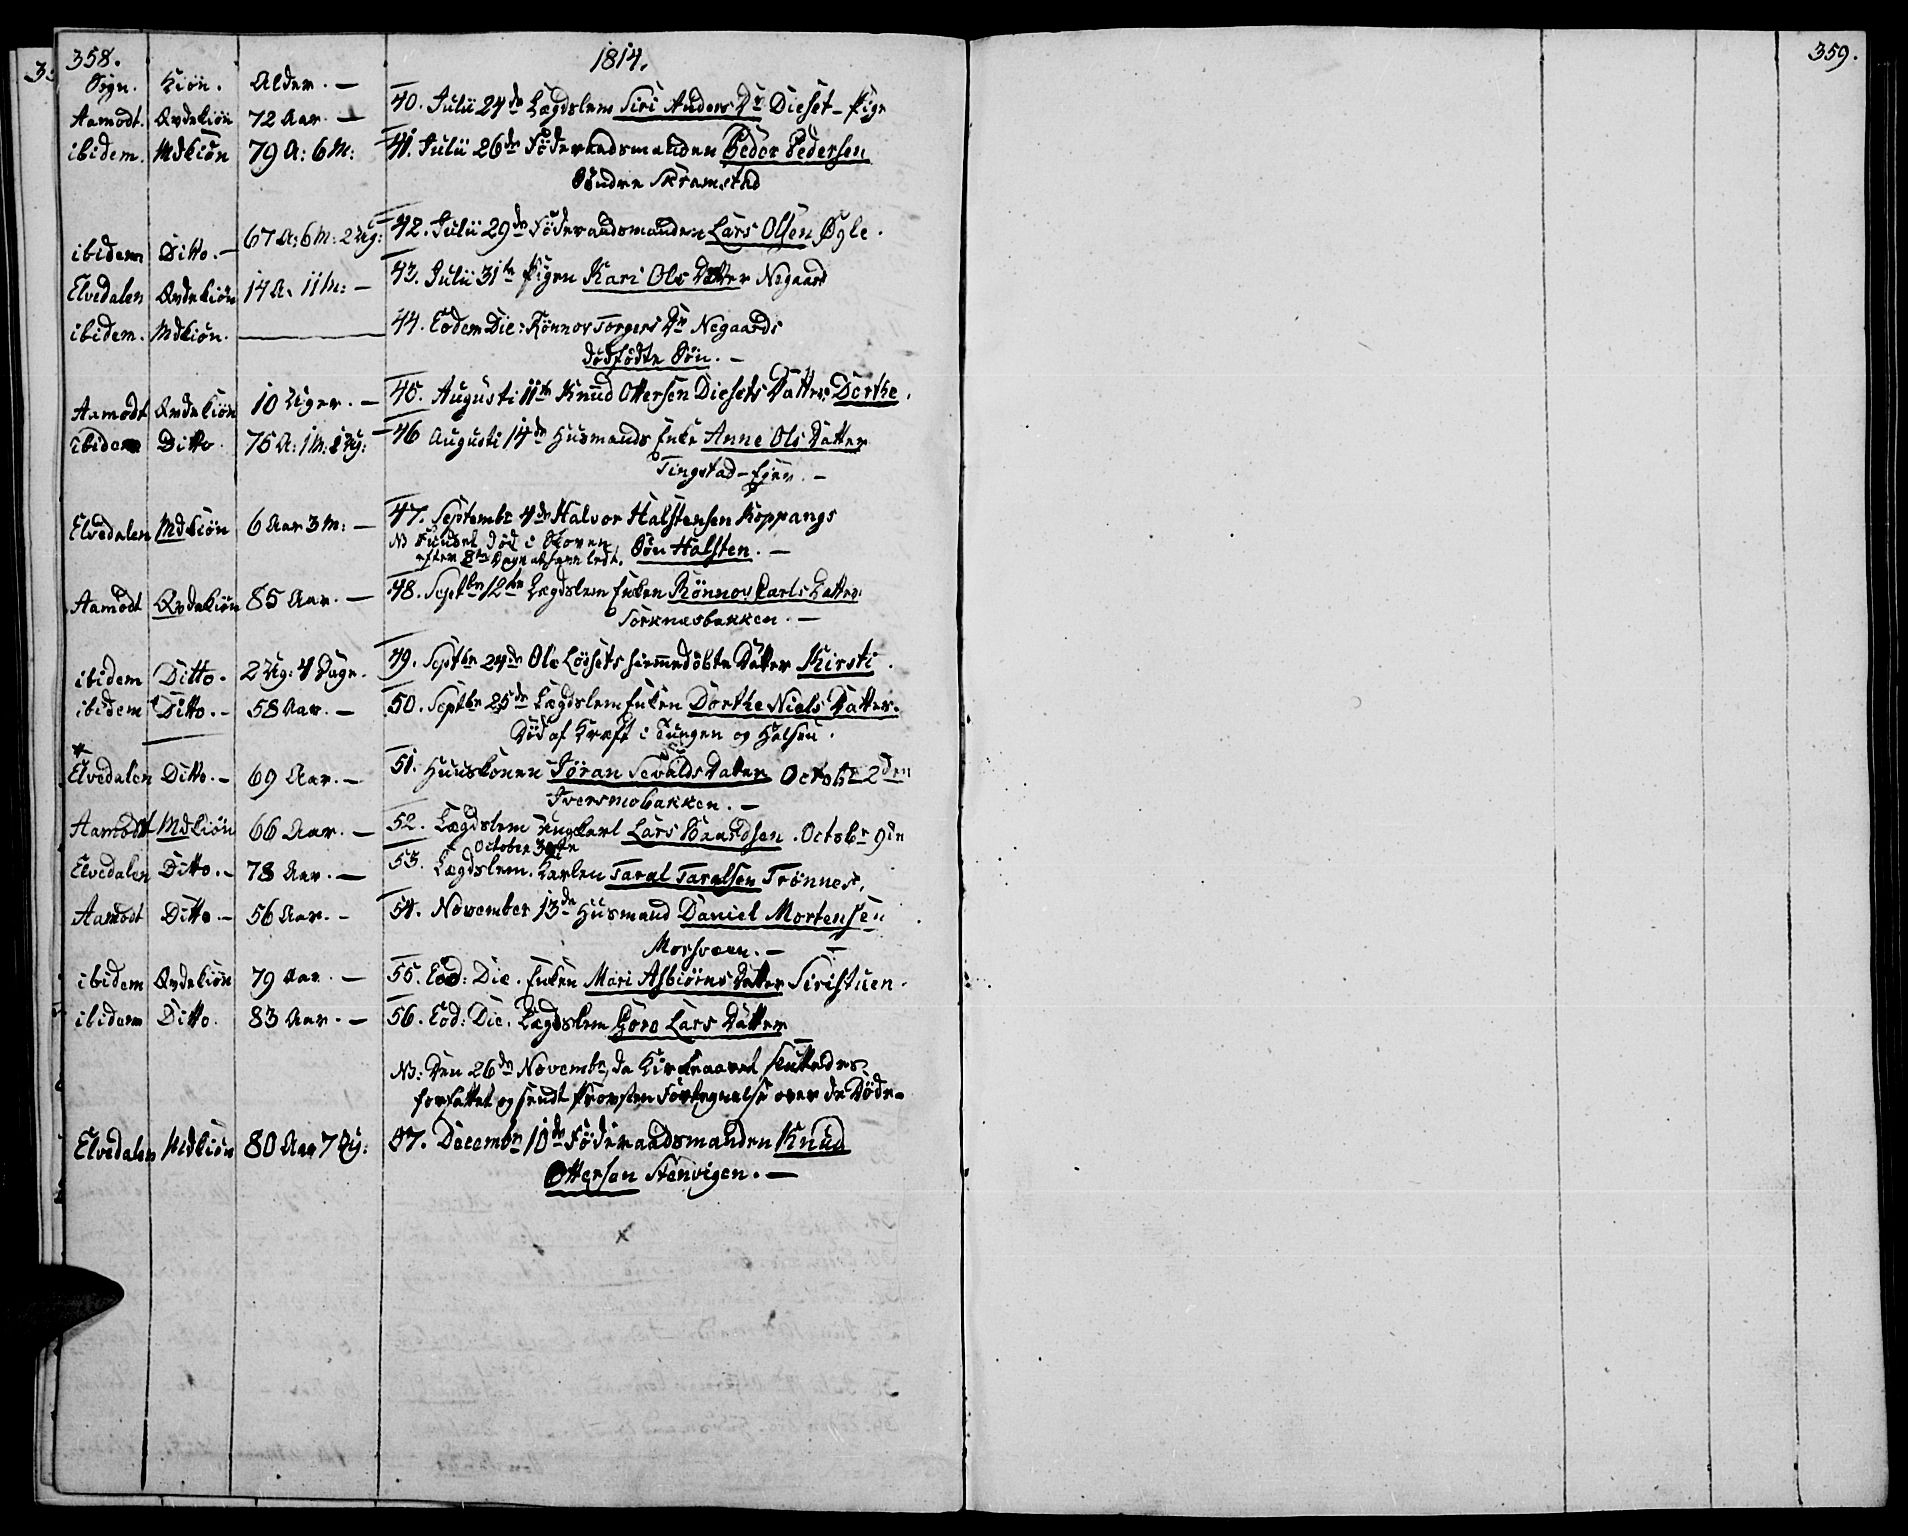 358.
1814.
359.
Sogn. Kiön. Alder. —
Aamodt. Qvdekiön 72 Aar. — 40. Julii 24de Lægdslem Siri Anders Dr Dieset - Pige
ibidem. Mdkiön 79 A: 6 M: 41. Julii 26de Föderaadsmanden Peder Pedersen
Söndre Skramstad
ibidem Ditto. — 67 A: 6 M: 2 Ug: 42. Julii 29de Föderaadsmanden Lars Olsen Øgle.
Elvedalen Qvdekiön 14 A. 11 M: — 43. Julii 31te Pigen Kari Ols Datter Negaard
ibidem. Mdkiön. — 44. Eodem Die: Rönnov Torgers Dr Negaards
dödfödte Sön. —
Aamodt Qvdekiön 10 Uger. — 45. Augusti 11te Knud Ottersen Diesets Datter Dorthe.
ibidem Ditto. 76 A: 1 M: 2 Ug: 46 Augusti 14de Husmands Enke Anne Ols Datter
Tingstad-Ejen. —
Elvedalen Mdkiön 6 Aar 3 M: — 47. Septembr 4de Halvor Halstensen Koppangs
NB Fundet död i Skoven
efter 8te Dages Leden. Sön Halsten. —
Aamodt Qvdekiön 85 Aar. — 48. Septbr 12te Lægdslem Enken Rönnov Carls Datter
Sörknæsbakken. —
ibidem Ditto. 2 Ug: 4 Dage. 49. Septbr 24de Ole Lösets hiemmedöbte Datter Kirsti.
ibidem Ditto. — 58 Aar. — 50. Septbr 25de Lægdslem Enken Dorthe Niels Datter.
Död af Kræft i Tungen og Halsen.
Elvedalen Ditto. — 69 Aar. — 51. Huuskonen Jöran Sevalds Datter Octobr 2den
Iversmobakken. —
Aamodt Mdkiön 66 Aar. — 52. Lægdslem Ungkarl Lars Baardsen. Octobr 9de
October 30te
Elvedalen Ditto. — 78 Aar. — 53. Lægdslem. Karlen Taral Taralsen Trönnes.
Aamodt Ditto — 56 Aar. — 54. November 13de Husmand Daniel Mortensen
Morsveen. —
ibidem Qvdekiön 79 Aar. — 55. Eod: Die. Enken Mari Asbiörns Datter Siristuen.
ibidem Ditto. 83 Aar. — 56. Eod: Die. Lægdslem Goro Lars Datter
NB: Den 26de Novembr, da Kirkeaaret sluttedes
forfattet og sendt Provsten Fortegnelse over de Döde —
Elvedalen Mdkiön 80 Aar 7 Ug: 57. Decembr 10de Föderaadsmanden Knud
Ottersen Stenvigen. —